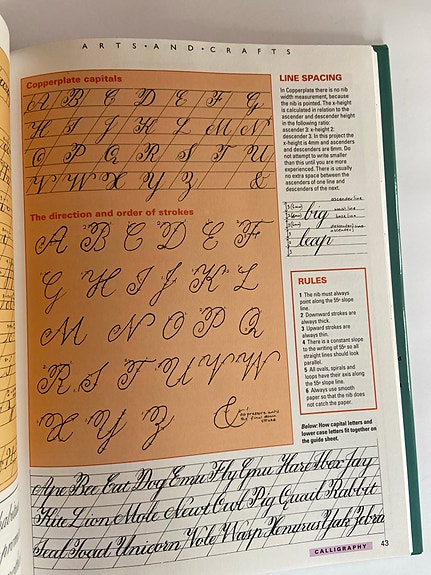 ARTS•AND•CRAFTS
Copperplate capitals
A B C D E F G
H I J K L M N
O P Q R S T U
V W X Y Z &
The direction and order of strokes
A B C D E F
G H I J K L
M N O P Q
R S T U V W
X Y Z &
no pressure until
the final down
stroke
LINE SPACING
In Copperplate there is no nib
width measurement, because
the nib is pointed. The x-height
is calculated in relation to the
ascender and descender height
in the following ratio:
ascender 3: x-height 2:
descender 3. In this project the
x-height is 4mm and ascenders
and descenders are 6mm. Do
not attempt to write smaller
than this until you are more
experienced. There is usually
no extra space between the
ascenders of one line and
descenders of the next.
ascender line
3 (6mm)
2 (4mm)
3 (6mm)
big
waist line
base line
descender line
ascender
leap
RULES
1 The nib must always
point along the 55° slope
line.
2 Downward strokes are
always thick.
3 Upward strokes are
always thin.
4 There is a constant slope
to the writing of 55° so all
straight lines should look
parallel.
5 All ovals, spirals and
loops have their axis along
the 55° slope line.
6 Always use smooth
paper so that the nib does
not catch the paper.
Below: How capital letters and
lower case letters fit together on
the guide sheet.
Ape Bee Cat Dog Emu Fly Gnu Hare Ibex Jay
Kite Lion Mole Newt Owl Pig Quail Rabbit
Seal Toad Unicorn Vole Wasp Xenurus Yak Zebra
CALLIGRAPHY
43